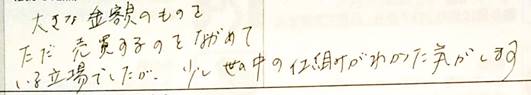 大きな金額のものを
ただ売買するのをながめて
いる立場でしたが、少し世の中の仕組みがわかった気がします